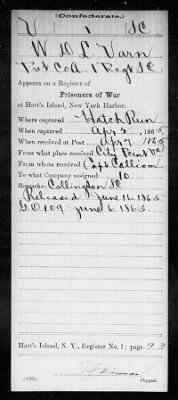 (Confederate.)
V 1 SC
W D L Varn
Pvt Co A 1 Regt SC
Appears on a Register of
Prisoners of War
at Hart's Island, New York Harbor.
Where captured Hatch Run
When captured Apr 2, 1865
When received at Post Apr 7, 1865
From what place received City Point Va
From whom received Capt
To what Company assigned 10
Remarks: Collington SC
Released June 16 1865
G.O 109 June 6 1865
Hart's Island, N. Y., Register No. 1; page 93
(639) Copyist.